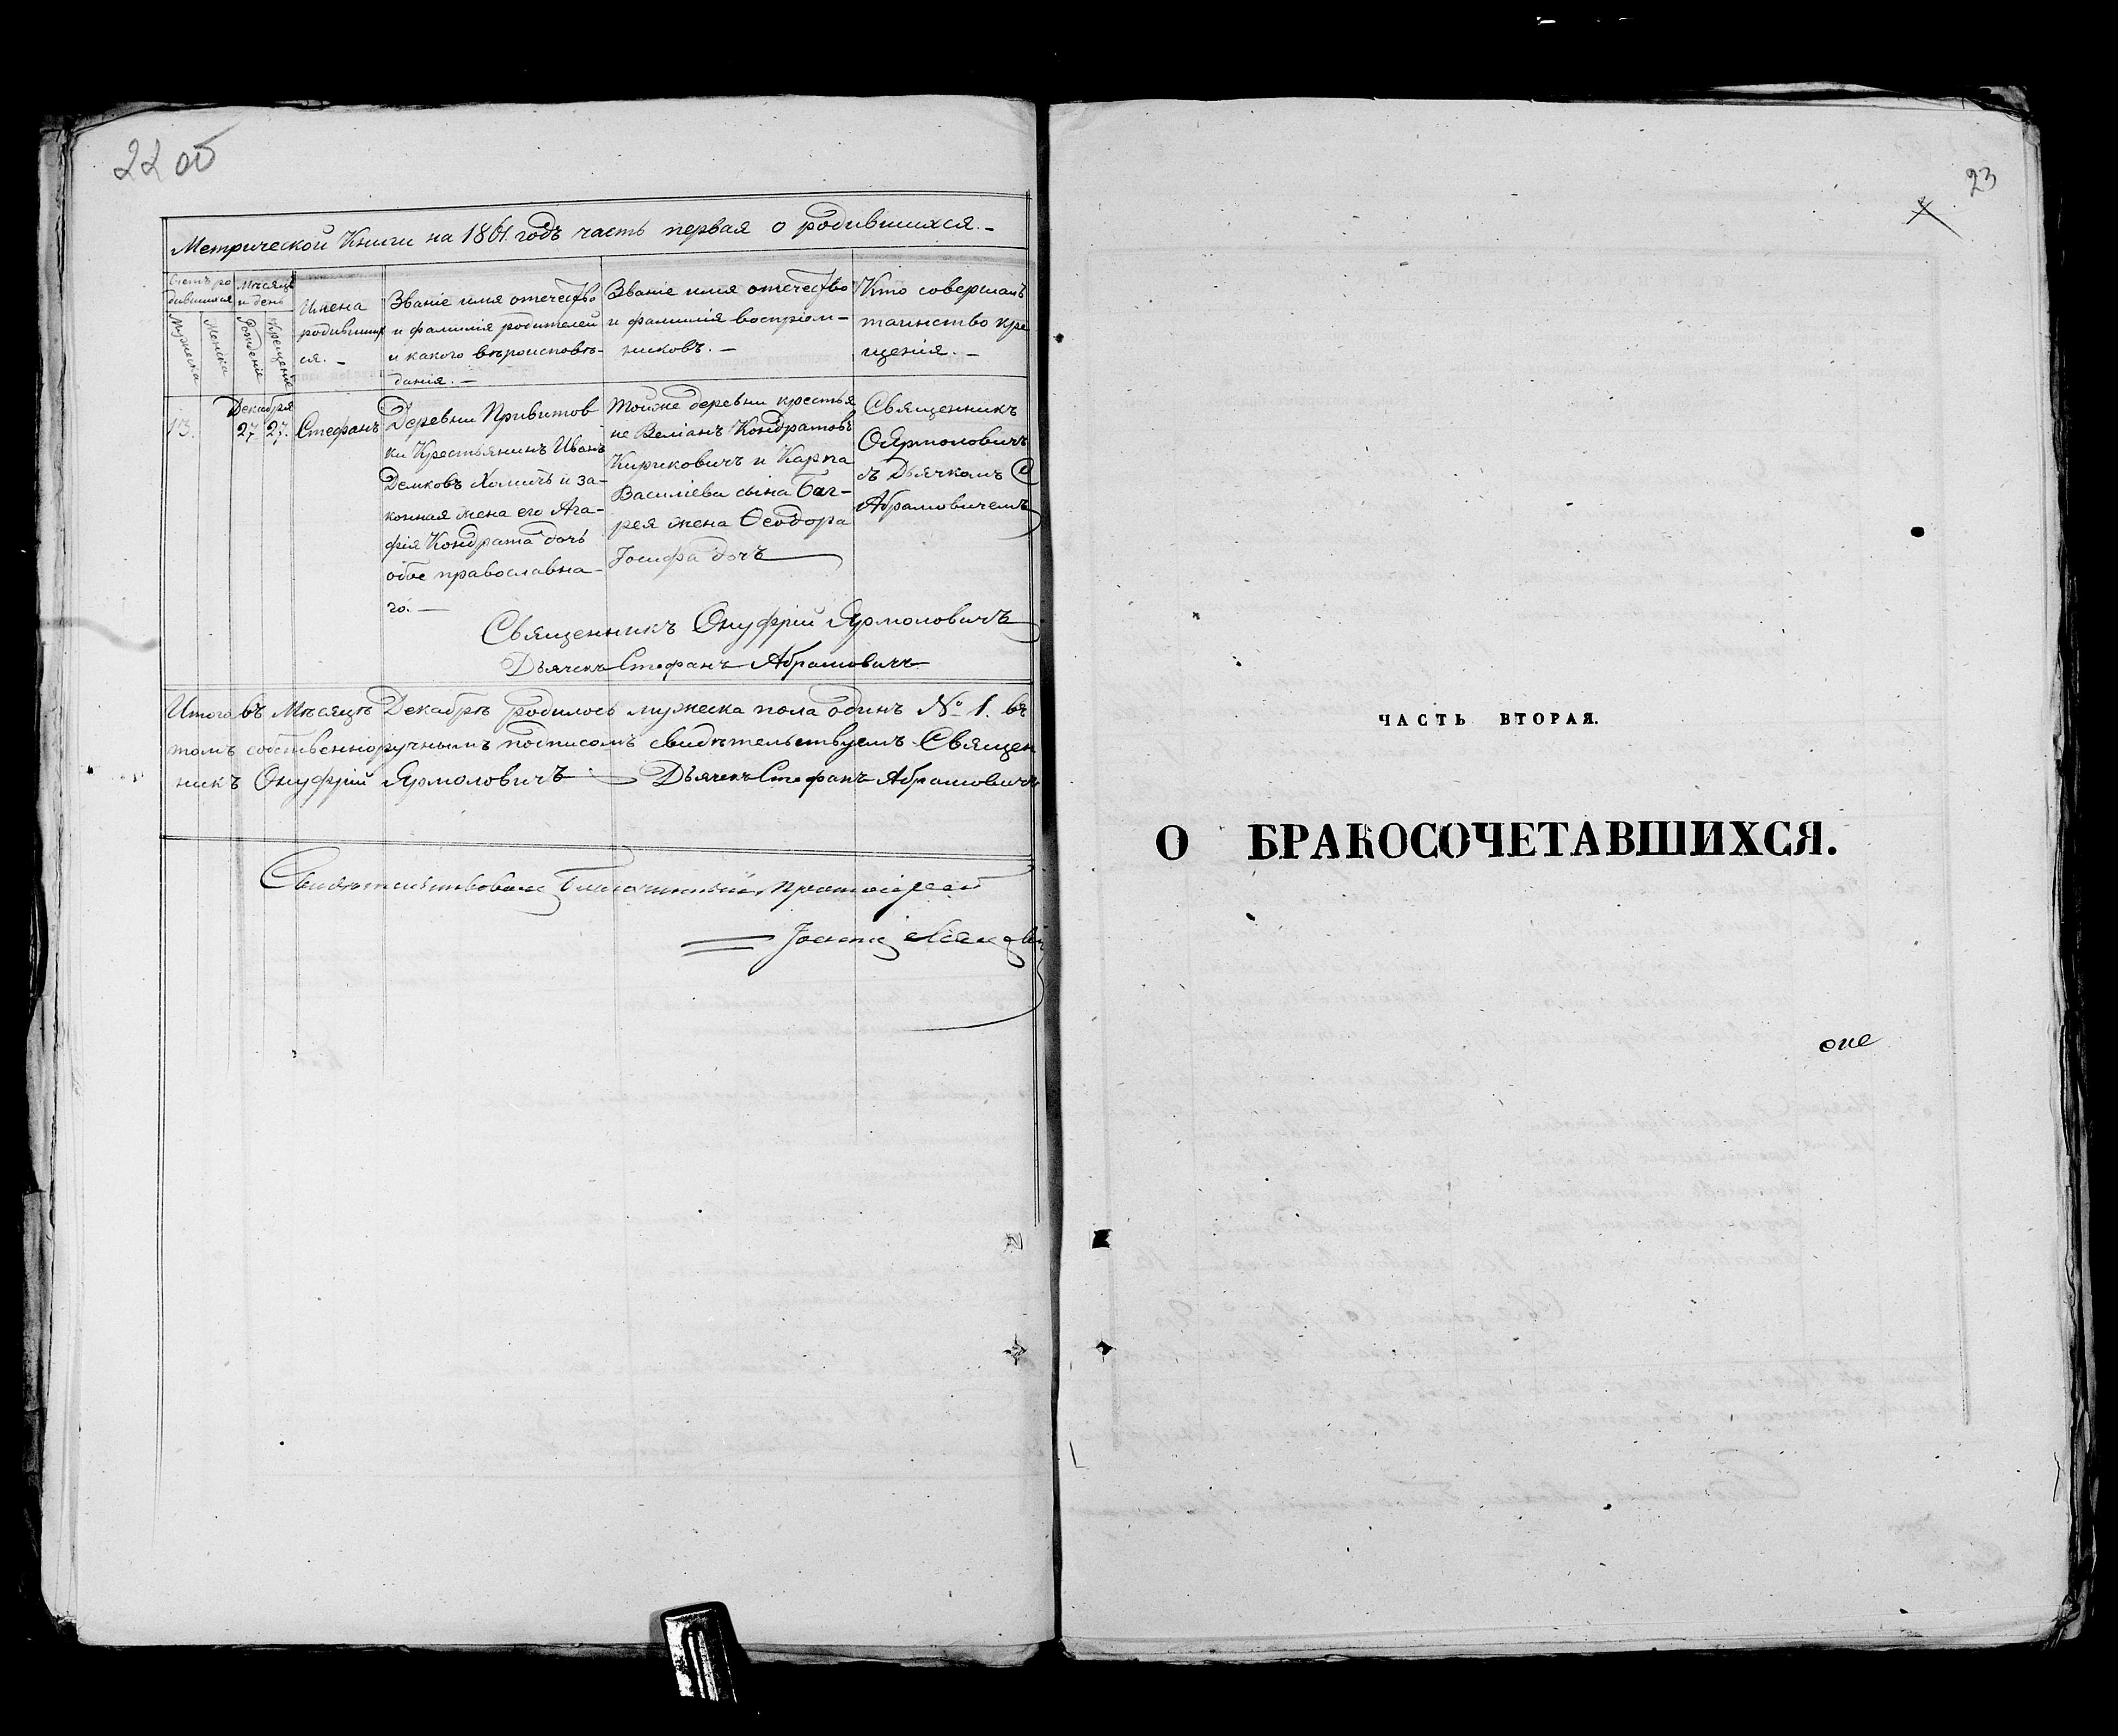 22 об
Метрической Книги на 1861 годъ часть первая о родившихся. —
Счетъ ро
дившихся
Мужеска
Женска
Мѣсяцъ
и день
Рожденіе
Крещеніе
Имена
родивших
ся. —
Званіе имя отечество
и фамилія родителей
и какого вѣроисповѣ-
данія. —
Званіе имя отечество
и фамилія воспріем-
никовъ. —
Кто совершалъ
таинство кре
щенія. —
13.
Декабря
27 27.
Стефанъ
Деревни Привитов
ки Крестьянинъ Иванъ
Демковъ Хомичъ и за-
конная жена его Ага-
фія Кондрата дочь
обое православна-
го. —
Тойже деревни крестья
не Веліанъ Кондратовъ
Кириковичъ и Карпа
Василіева сына Баг-
рея жена Ѳеодора
Іосифа дочъ
Священникъ
О Ярмоловичъ
съ Дьячкомъ С
Абрамовичемъ
Священникъ Онуфрій Ярмоловичъ
Дьячекъ Стефанъ Абрамовичъ
Итого въ Мѣсяцѣ Декабрѣ родилось мужеска пола одинъ № 1. въ
томъ собственноручнымъ подписомъ свидѣтельствуемъ Священ
никъ Онуфрій Ярмоловичъ Дьячекъ Стефанъ Абрамовичъ
Свидѣтельствовалъ Благочинный, Протоіерей
23
ЧАСТЬ ВТОРАЯ.
О БРАКОСОЧЕТАВШИХСЯ.